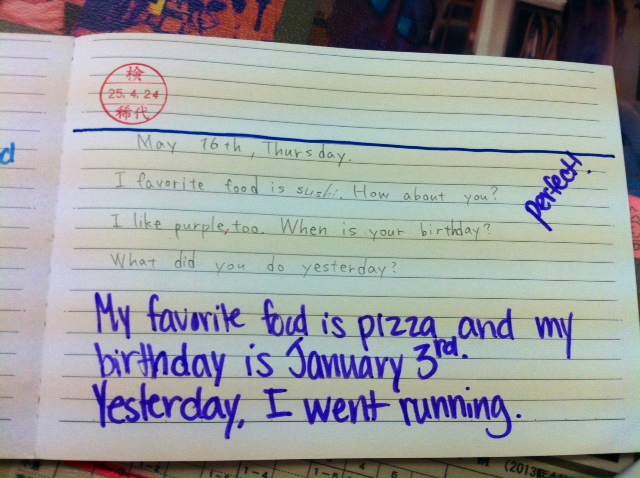 検
25.4.24
稀代
d
May 16th, Thursday.
I favorite food is sushi. How about you?
I like purple, too. When is your birthday?
What did you do yesterday?
perfect!
My favorite food is pizza and my
birthday is January 3rd.
Yesterday, I went running.
1-2
1-4
1-5
4
5
(2013